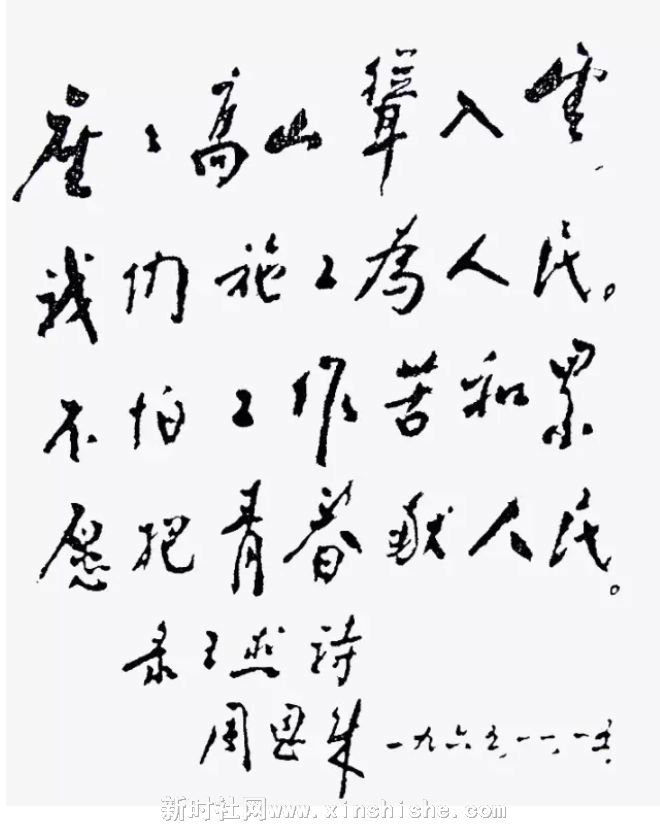 座々高山聳入雲，
我们施工為人民。
不怕工作苦和累
愿把青春献人民。
录王杰诗
周恩来 一九六五、十一、十五、
新时社网www.xinshishe.com